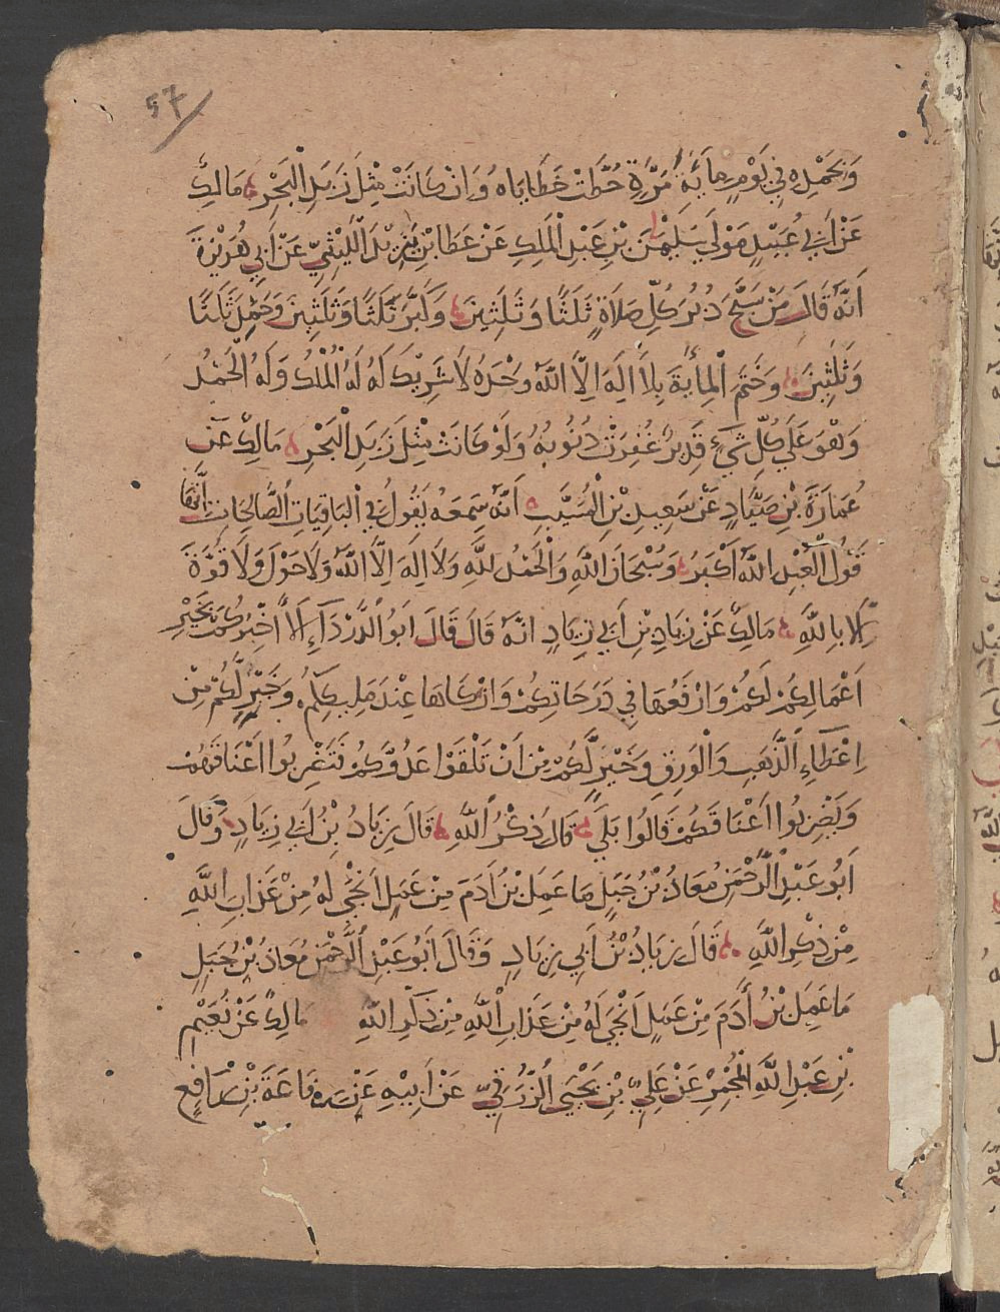 57
وَبِحَمْدِهِ فِي يَوْمٍ مِايَةَ مَرَّةٍ حُطَّتْ خَطَايَاهُ وَاِنْ كَانَتْ مِثْلَ زَبَدِ الْبَحْرِ مَالِكٌ
عَنْ اَبِي عُبَيْدٍ مَوْلَى سُلَيْمٰنَ بْنِ عَبْدِ الْمَلِكِ عَنْ عَطَا بْنِ يَزِيْدَ الَّليْثِيِّ عَنْ أَبِي هُرَيْرَةَ
اَنَّهُ قَالَ مَنْ سَبَّحَ دُبُرَ كُلِّ صَلَاةٍ ثَلَثًا وَثَلَثِينَ وَكَبَّرَ ثَلَثًا وَثَلَثِينَ وَحَمِدَ ثَلَثًا
وَثَلَثِينَ وَخَتَمَ الْمِايَةَ بِلَا اِلَهَ اِلَّا اللَّهُ وَحْدَهُ لَا شَرِيْكَ لَهُ لَهُ الْمُلْكُ وَلَهُ الْحَمْدُ
وَهْوَ عَلَى كُلِّ شَيْءٍ قَدِيرٌ غُفِرَتْ ذُنُوبُهُ وَلَوْ كَانَتْ مِثْلَ زَبَدِ الْبَحْرِ مَالِكٌ عَنْ
عُمَارَةَ بْنِ صَيَّادٍ عَنْ سَعِيدِ بْنِ الْمُسَيَّبِ اَنَّهُ سَمِعَهُ يَقُولُ فِي الْبَاقِيَاتِ الصَّالِحَاتِ اَنَّهَا
قَوْلُ الْعَبْدِ اللَّهُ اَكْبَرُ وَسُبْحَانَ اللَّهِ وَالْحَمْدُ لِلَّهِ وَلَا اِلَهَ اِلَّا اللَّهُ وَلَا حَوْلَ وَلَا قُوَّةَ
اِلَّا بِاللَّهِ مَالِكٌ عَنْ زِيَادِ بْنِ اَبِي زِيَادٍ انَّهُ قَالَ قَالَ اَبُو الدَّرْدَآءِ اَلَا اُخْبِرُكُمْ بِخَيْرِ
اَعْمَالِكُمْ لَكُمْ وَاَرْفَعُهَا فِي دَرَجَاتِكُمْ وَاَزْكَاهَا عِنْدَ مَلِيكِكُمْ وَخَيْرٍ لَّكُمْ مِنْ
اِعْطَاءِ الذَّهَبِ وَالْوَرِقِ وَخَيْرٍ لَّكُمْ مِنْ اَنْ تَلْقَوْا عَدُوَّكُمْ فَتَضْرِبُوا اَعْنَاقَهُمْ
وَيَضْرِبُوا اَعْنَاقَكُمْ قَالُوا بَلَى قَالَ ذِكْرُ اللَّهِ قَالَ زِيَادُ بْنُ اَبِي زِيَادٍ وَقَالَ
اَبُو عَبْدِ الرَّحْمَنِ مُعَاذُ بْنُ جَبَلٍ مَا عَمِلَ بْنُ اَدَمَ مِنْ عَمَلٍ اَنْجَى لَهُ مِنْ عَذَابِ اللَّهِ
مِنْ ذِكْرِ اللَّهِ قَالَ زِيَادُ بْنُ اَبِي زِيَادٍ وَقَالَ اَبُو عَبْدِ الرَّحْمَنِ مُعَاذُ بْنُ جَبَلٍ
مَا عَمِلَ بْنُ أَدَمَ مِنْ عَمَلٍ اَنْجَى لَهُ مِنْ عَذَابِ اللَّهِ مِنْ ذِكْرِ اللَّهِ مَالِكٌ عَنْ نُعَيْمِ
بْنِ عَبْدِ اللَّهِ الْمُجْمِرِ عَنْ عَلِيِّ بْنِ يَحْيَى الزُّرَقِيِّ عَنْ اَبِيْهِ عَنْ رِفَاعَةَ بْنِ رَافِعٍ